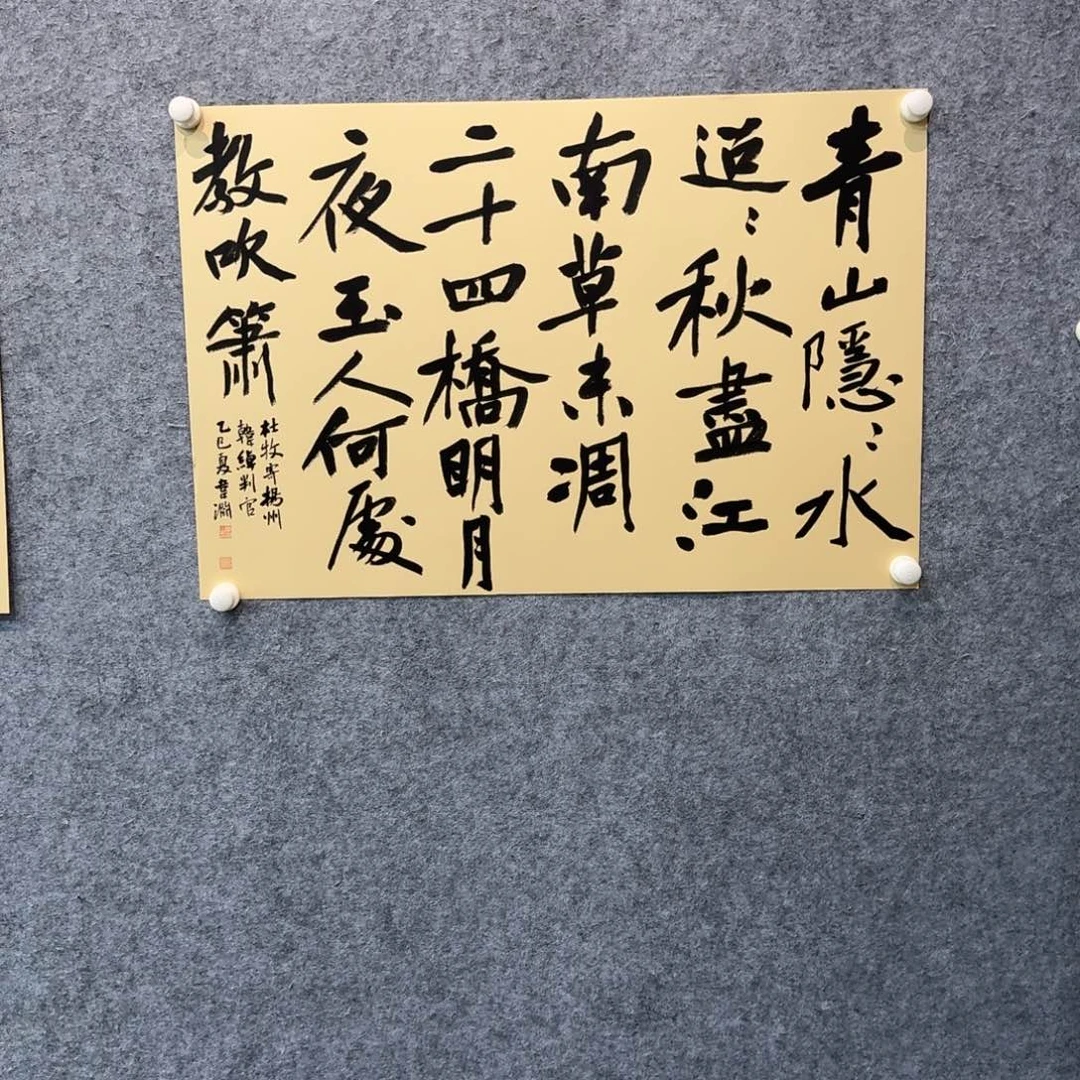 青山隱〻水
迢〻秋盡江
南草未凋
二十四橋明月
夜玉人何處
教吹簫
杜牧寄揚州
韓綽判官
乙巳夏